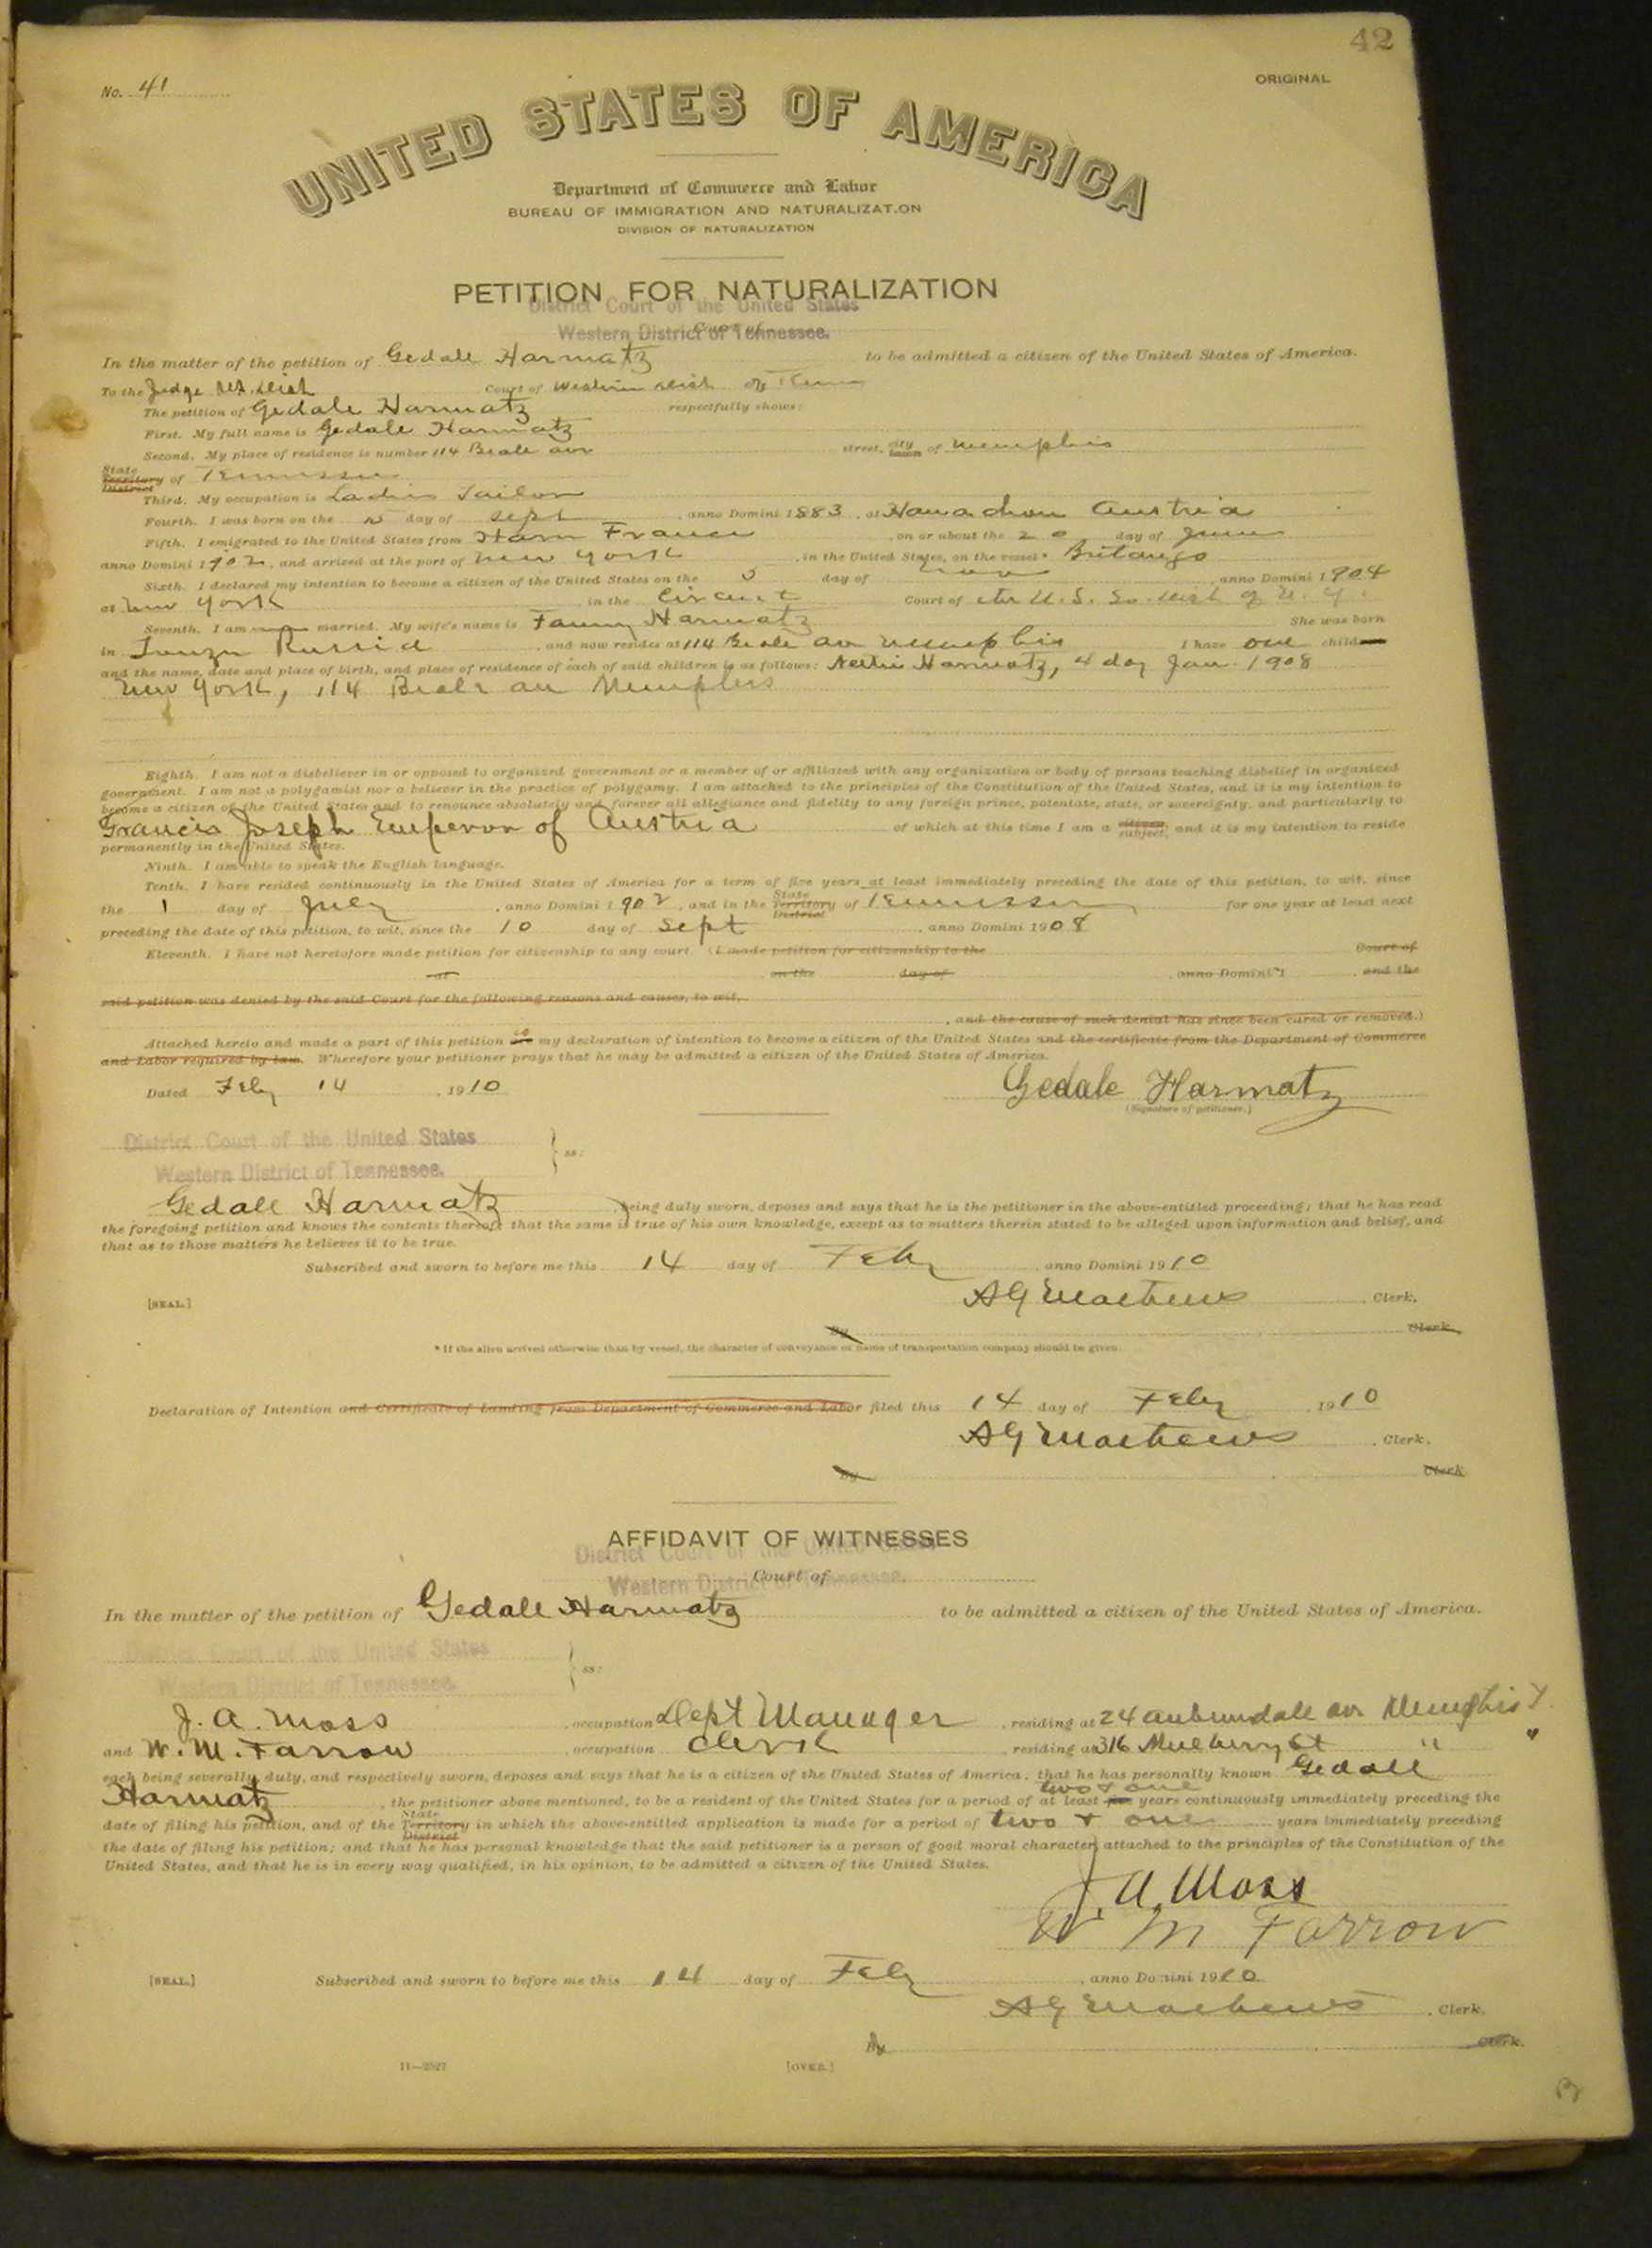 42
No. 41
ORIGINAL
UNITED STATES OF AMERICA
Department of Commerce and Labor
BUREAU OF IMMIGRATION AND NATURALIZATION
DIVISION OF NATURALIZATION
PETITION FOR NATURALIZATION
District Court of the United States
Western District of Tennessee.
In the matter of the petition of Gedale Harmatz to be admitted a citizen of the United States of America.
To the Judge US Dist Court of Western Dist of Tenn
The petition of Gedale Harmatz respectfully shows:
First. My full name is Gedale Harmatz
Second. My place of residence is number 114 Beale ave street, city town of Memphis
State Territory District of Tennessee
Third. My occupation is Ladies Tailor
Fourth. I was born on the 15 day of Sept, anno Domini 1883, at Austria
Fifth. I emigrated to the United States from France, on or about the 20 day of June
anno Domini 1902, and arrived at the port of New York, in the United States, on the vessel*
Sixth. I declared my intention to become a citizen of the United States on the 5 day of Nov, anno Domini 1904
at New York, in the Circuit Court of the U. S. So. Dist of N. Y.
Seventh. I am married. My wife's name is Fanny Harmatz She was born
in Russia, and now resides at 114 Beale av Memphis I have one child
and the name, date and place of birth, and place of residence of each of said children is as follows: Harmatz, 4 day Jan. 1908
New York, 114 Beale av Memphis
Eighth. I am not a disbeliever in or opposed to organized government or a member of or affiliated with any organization or body of persons teaching disbelief in organized
government. I am not a polygamist nor a believer in the practice of polygamy. I am attached to the principles of the Constitution of the United States, and it is my intention to
become a citizen of the United States and to renounce absolutely and forever all allegiance and fidelity to any foreign prince, potentate, state, or sovereignty, and particularly to
Francis Joseph Emperor of Austria of which at this time I am a citizen subject, and it is my intention to reside
permanently in the United States.
Ninth. I am able to speak the English language.
Tenth. I have resided continuously in the United States of America for a term of five years at least immediately preceding the date of this petition, to wit, since
the 1 day of July, anno Domini 1902, and in the State Territory District of Tennessee for one year at least next
preceding the date of this petition, to wit, since the 10 day of Sept, anno Domini 1908
Eleventh. I have not heretofore made petition for citizenship to any court. (I made petition for citizenship to the Court of
at, on the day of, anno Domini 1, and the
said petition was denied by the said Court for the following reasons and causes, to wit,
, and the cause of such denial has since been cured or removed.)
Attached hereto and made a part of this petition is are my declaration of intention to become a citizen of the United States and the certificate from the Department of Commerce
and Labor required by law. Wherefore your petitioner prays that he may be admitted a citizen of the United States of America.
Dated Feby 14, 1910
Gedale Harmatz
(Signature of petitioner.)
District Court of the United States
Western District of Tennessee. } ss:
Gedale Harmatz, being duly sworn, deposes and says that he is the petitioner in the above-entitled proceeding; that he has read
the foregoing petition and knows the contents thereof; that the same is true of his own knowledge, except as to matters therein stated to be alleged upon information and belief, and
that as to those matters he believes it to be true.
Subscribed and sworn to before me this 14 day of Feby, anno Domini 1910
[SEAL.] Mathews, Clerk.
By Clerk.
* If the alien arrived otherwise than by vessel, the character of conveyance or name of transportation company should be given.
Declaration of Intention and Certificate of Landing from Department of Commerce and Labor filed this 14 day of Feby, 1910
Mathews, Clerk.
By Clerk
AFFIDAVIT OF WITNESSES
District Court of the United States
Court of
Western District of Tennessee.
In the matter of the petition of Gedale Harmatz to be admitted a citizen of the United States of America.
District Court of the United States
Western District of Tennessee. } ss:
J. A. Moss, occupation Dept Manager, residing at 24 Auburndale ave Memphis T.
and W. M. Farrow, occupation Clerk, residing at 316 Mulberry St " "
each being severally, duly, and respectively sworn, deposes and says that he is a citizen of the United States of America; that he has personally known Gedale
Harmatz, the petitioner above mentioned, to be a resident of the United States for a period of at least two & one years continuously immediately preceding the
date of filing his petition, and of the State Territory District in which the above-entitled application is made for a period of two & one years immediately preceding
the date of filing his petition; and that he has personal knowledge that the said petitioner is a person of good moral character, attached to the principles of the Constitution of the
United States, and that he is in every way qualified, in his opinion, to be admitted a citizen of the United States.
J. A. Moss
W M Farrow
[SEAL.] Subscribed and sworn to before me this 14 day of Feby, anno Domini 1910
Mathews, Clerk.
By Clerk.
11—2527
[OVER.]